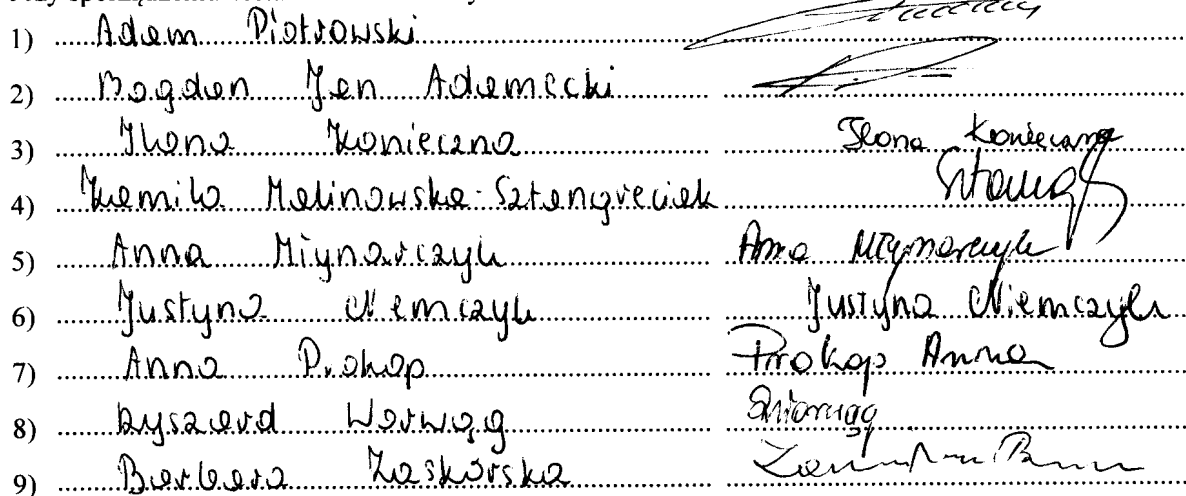 1) Adam Piotrowski
2) Bogdan Jan Adamecki
3) Ilona Konieczna Ilona Konieczna
4) Kamila Malinowska-Sztangreciak
5) Anna Młynarczyk Anna Młynarczyk
6) Justyna Niemczyk Justyna Niemczyk
7) Anna Prokop Prokop Anna
8) Ryszard Worwąg
9) Barbara Zaskórska